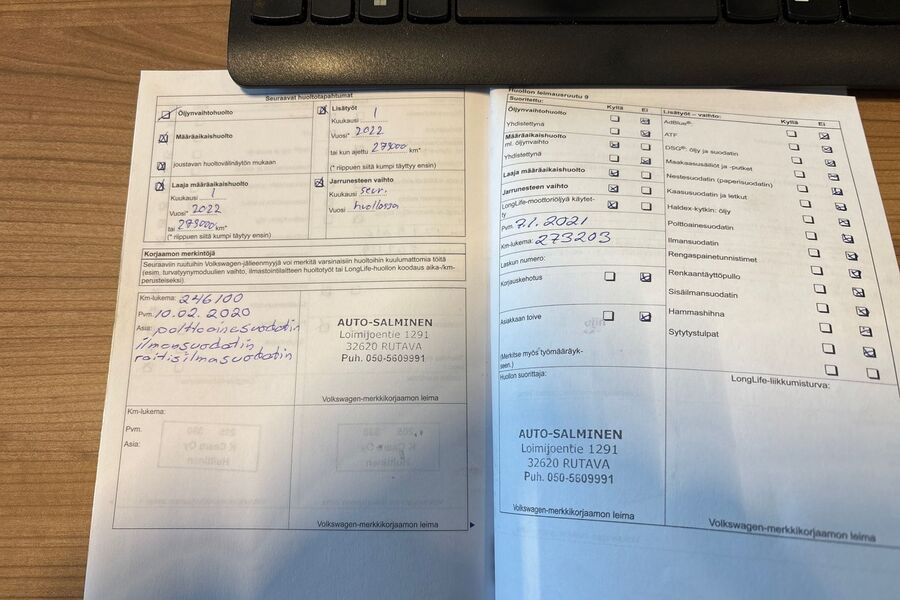 Seuraavat huoltotapahtumat
Öljynvaihtohuolto
Määräaikaishuolto
joustavan huoltovälinäytön mukaan
Laaja määräaikaishuolto
Kuukausi 1
Vuosi* 2022
tai 273000 km*
(* riippuen siitä kumpi täyttyy ensin)
Lisätyöt
Kuukausi 1
Vuosi* 2022
tai kun ajettu 273000 km*
(* riippuen siitä kumpi täyttyy ensin)
Jarrunesteen vaihto
Kuukausi seur.
Vuosi huollossa
Korjaamon merkintöjä
Seuraaviin ruutuihin Volkswagen-jälleenmyyjä voi merkitä varsinaisiin huoltoihin kuulumattomia töitä
(esim. turvatyynymoduulien vaihto, ilmastointilaitteen huoltotyöt tai LongLife-huollon koodaus aika-/km-
perusteiseksi).
Km-lukema: 246100
Pvm. 10.02.2020
Asia: polttoainesuodatin
ilmansuodatin
raitisilmasuodatin
AUTO-SALMINEN
Loimijoentie 1291
32620 RUTAVA
Puh. 050-5609991
Volkswagen-merkkikorjaamon leima
Km-lukema:
Pvm.
Asia:
Volkswagen-merkkikorjaamon leima
Huollon leimausruutu 9
Suoritettu: Kyllä Ei
Öljynvaihtohuolto
Yhdistettynä
Määräaikaishuolto
ml. öljynvaihto
Yhdistettynä
Laaja määräaikaishuolto
Jarrunesteen vaihto
LongLife-moottoriöljyä käytet-
ty
Pvm. 7.1.2021
Km-lukema: 273203
Laskun numero:
Korjauskehotus
Asiakkaan toive
(Merkitse myös työmääräyk-
seen.)
Huollon suorittaja:
AUTO-SALMINEN
Loimijoentie 1291
32620 RUTAVA
Puh. 050-5609991
Volkswagen-merkkikorjaamon leima
Lisätyöt – vaihto: Kyllä Ei
AdBlue®:
ATF
DSG®: öljy ja suodatin
Maakaasusäiliöt ja -putket
Nestesuodatin (paperisuodatin)
Kaasusuodatin ja letkut
Haldex-kytkin: öljy
Polttoainesuodatin
Ilmansuodatin
Rengaspainetunnistimet
Renkaantäyttöpullo
Sisäilmansuodatin
Hammashihna
Sytytystulpat
LongLife-liikkumisturva:
Volkswagen-merkkikorjaamon leima